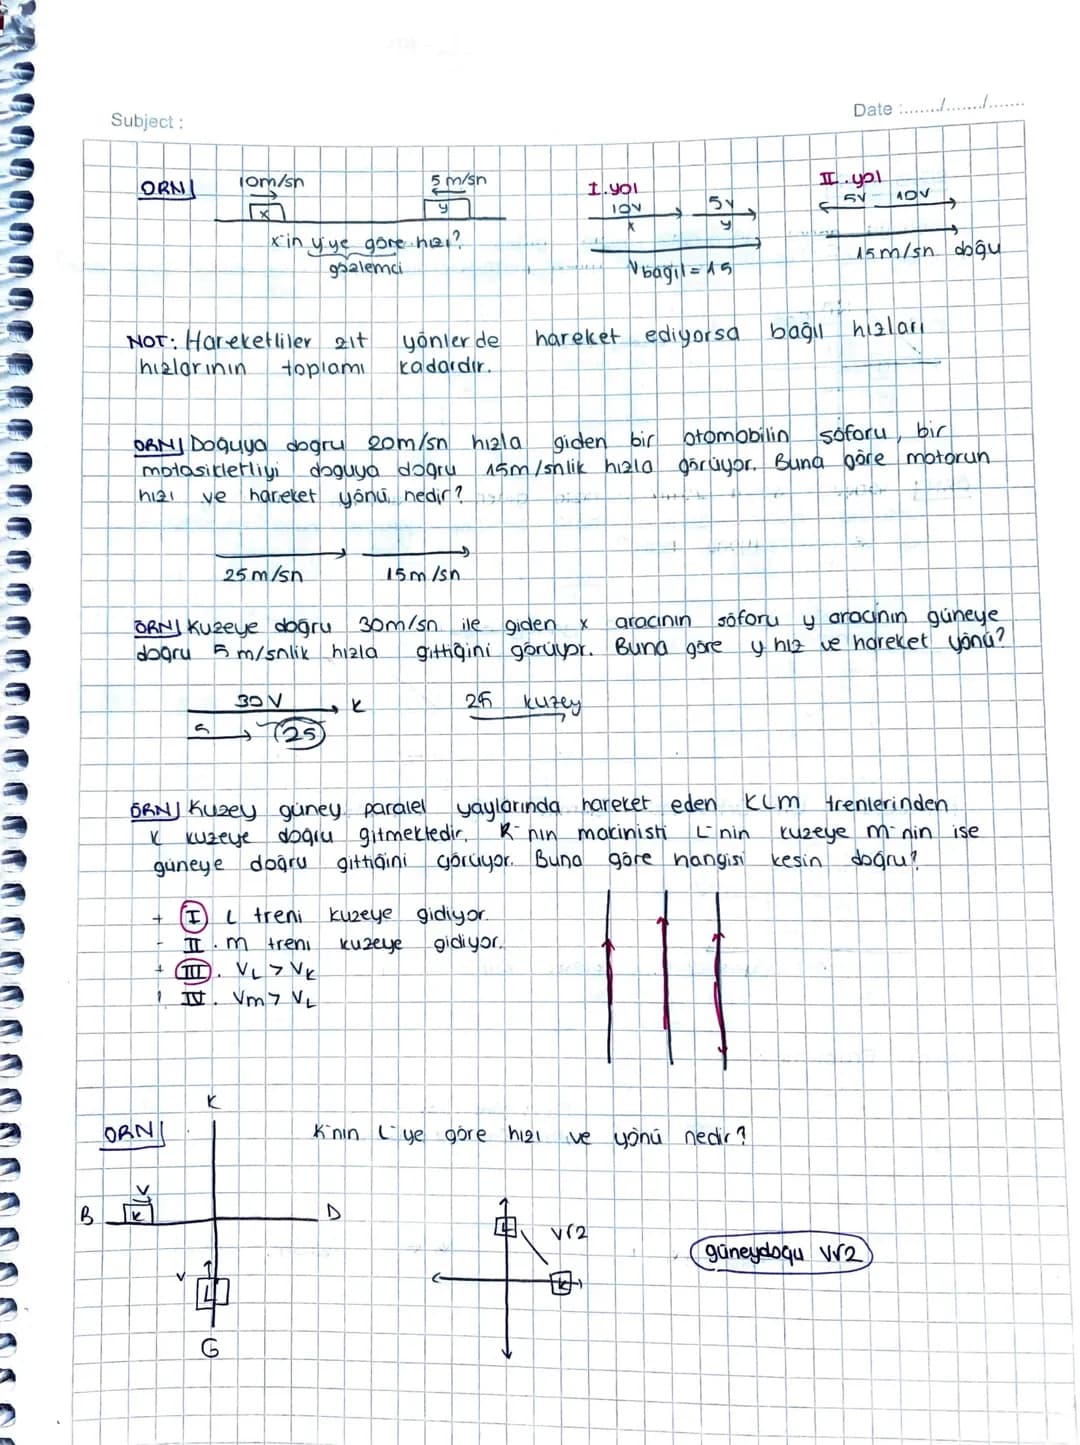 Subject :
Date :......./......./.......
ÖRN| 10m/sn 5 m/sn I.yol II.yol
x y 10v x 5v y 5v 10v
x'in y'ye göre hızı?
gözlemci
Vbağıl = 15
15m/sn doğu
NOT: Hareketliler zıt yönlerde hareket ediyorsa bağıl hızları
hızlarının toplamı kadardır.
ÖRN| Doğuya doğru 20m/sn hızla giden bir otomobilin şöforu, bir
motasikletliyi doguya doğru 15m/snlik hızla görüyor. Buna göre motorun
hızı ve hareket yönü nedir?
25m/sn 15m/sn
ÖRN| Kuzeye doğru 30m/sn ile giden x aracının şöforu y aracının güneye
doğru 5 m/snlik hızla gittiğini görüyor. Buna göre y hız ve hareket yönü?
30V K 25 kuzey
5 25
ÖRN| Kuzey güney paralel yaylarında hareket eden KLM trenlerinden
K kuzeye doğru gitmektedir. K'nın makinisti L'nin kuzeye m'nin ise
güneye doğru gittiğini görüyor. Buna göre hangisi kesin doğru?
+ I L treni kuzeye gidiyor.
- II. m treni kuzeye gidiyor.
+ III. VL > VK
IV. Vm > VL
K
ÖRN| K'nın L'ye göre hızı ve yönü nedir?
V
B K D
L V√2
güneydoğu V√2
K
V
L
G